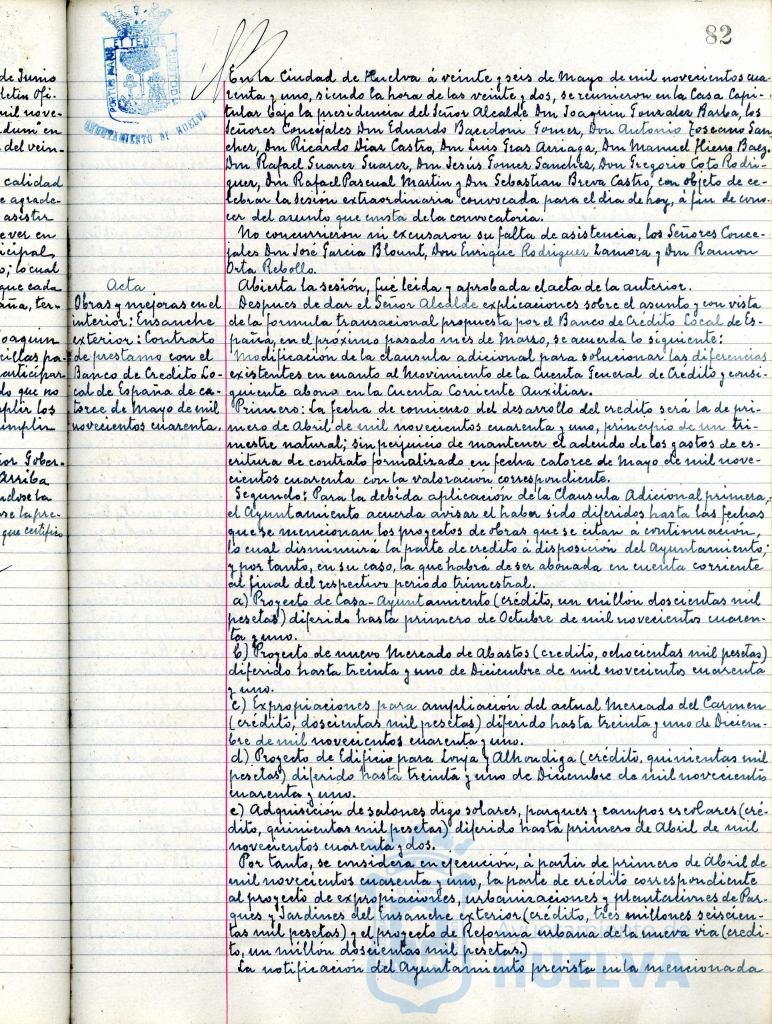 82
PORTUS MARIS
ET TERRE
CUSTODIA
AYUNTAMIENTO DE HUELVA
de Junio
letin Ofi-
mil nove-
del vein-
calidad
e agrade-
asistir
ever en
icipal
o; lo cual
que cada
aña, ter-
oaquin
cillas pa-
articipar
do que no
mplir los
umplir
or Gober-
Arriba
ndose la
rse la pre-
que certifico
Acta
Obras y mejoras en el
interior: Ensanche
exterior: Contrato
de prestamo con el
Banco de Credito Lo-
cal de España de ca-
torce de Mayo de mil
novecientos cuarenta.
En la Ciudad de Huelva á veinte y seis de Mayo de mil novecientos cua-
renta y uno, siendo la hora de las veinte y dos, se reunieron en la Casa Capi-
tular bajo la presidencia del Señor Alcalde Don Joaquin Gonzalez Barba, los
Señores Concejales Don Eduardo Bacedoni Gomez, Don Antonio Toscano San-
chez, Don Ricardo Diaz Castro, Don Luis Gras Arriaga, Don Manuel Hierro Baez,
Don Rafael Suarez Suarez, Don Jesús Gomez Sanchez, Don Gregorio Coto Rodri-
guez, Don Rafael Pascual Martin y Don Sebastian Breva Castro, con objeto de ce-
lebrar la sesión extraordinaria convocada para el dia de hoy, á fin de cono-
cer del asunto que consta de la convocatoria.
No concurrieron ni excusaron su falta de asistencia, los Señores Conce-
jales Don José Garcia Blount, Don Enrique Rodriguez Zamora y Don Ramon
Orta Rebollo.
Abierta la sesión, fué leida y aprobada el acta de la anterior.
Despues de dar el Señor Alcalde explicaciones sobre el asunto y con vista
de la formula transacional propuesta por el Banco de Crédito Local de Es-
paña, en el proximo pasado mes de Marzo, se acuerda lo siguiente:
Modificación de la clausula adicional para solucionar las diferencias
existentes en cuanto al Movimiento de la Cuenta General de Crédito y consi-
guiente abono en la Cuenta Corriente Auxiliar.
Primero: La fecha de comienzo del desarrollo del credito será la de pri-
mero de Abril de mil novecientos cuarenta y uno, principio de un tri-
mestre natural; sin perjuicio de mantener el adeudo de los gastos de es-
critura de contrato formalizado en fecha catorce de Mayo de mil nove-
cientos cuarenta con la valoración correspondiente.
Segundo: Para la debida aplicación de la Clausula Adicional primera,
el Ayuntamiento acuerda avisar el haber sido diferidos hasta las fechas
que se mencionan los proyectos de obras que se citan á continuación,
lo cual disminuirá la parte de credito á disposición del Ayuntamiento;
y por tanto, en su caso, la que habrá de ser abonada en cuenta corriente
al final del respectivo periodo trimestral.
a) Proyecto de Casa-Ayuntamiento (crédito, un millón doscientas mil
pesetas) diferido hasta primero de Octubre de mil novecientos cuaren-
ta y uno.
b) Proyecto de nuevo Mercado de Abastos (credito, ochocientas mil pesetas)
diferido hasta treinta y uno de Diciembre de mil novecientos cuarenta
y uno.
c) Expropiaciones para ampliación del actual Mercado del Carmen
(crédito, doscientas mil pesetas) diferido hasta treinta y uno de Diciem-
bre de mil novecientos cuarenta y uno.
d) Proyecto de Edificio para Lonja y Alhondiga (crédito, quinientas mil
pesetas) diferido hasta treinta y uno de Diciembre de mil novecientos
cuarenta y uno.
e) Adquisición de salones digo solares, parques y campos escolares (cré-
dito, quinientas mil pesetas) diferido hasta primero de Abril de mil
novecientos cuarenta y dos.
Por tanto, se considera en ejecución, á partir de primero de Abril de
mil novecientos cuarenta y uno, la parte de crédito correspondiente
al proyecto de expropiaciones, urbanizaciones y plantaciones de Par-
ques y Jardines del Ensanche exterior (crédito, tres millones seiscien-
tas mil pesetas) y el proyecto de Reforma urbana de la nueva via (credi-
to, un millon doscientas mil pesetas.)
La notificación del Ayuntamiento prevista en la mencionada
Ayuntamiento de
HUELVA